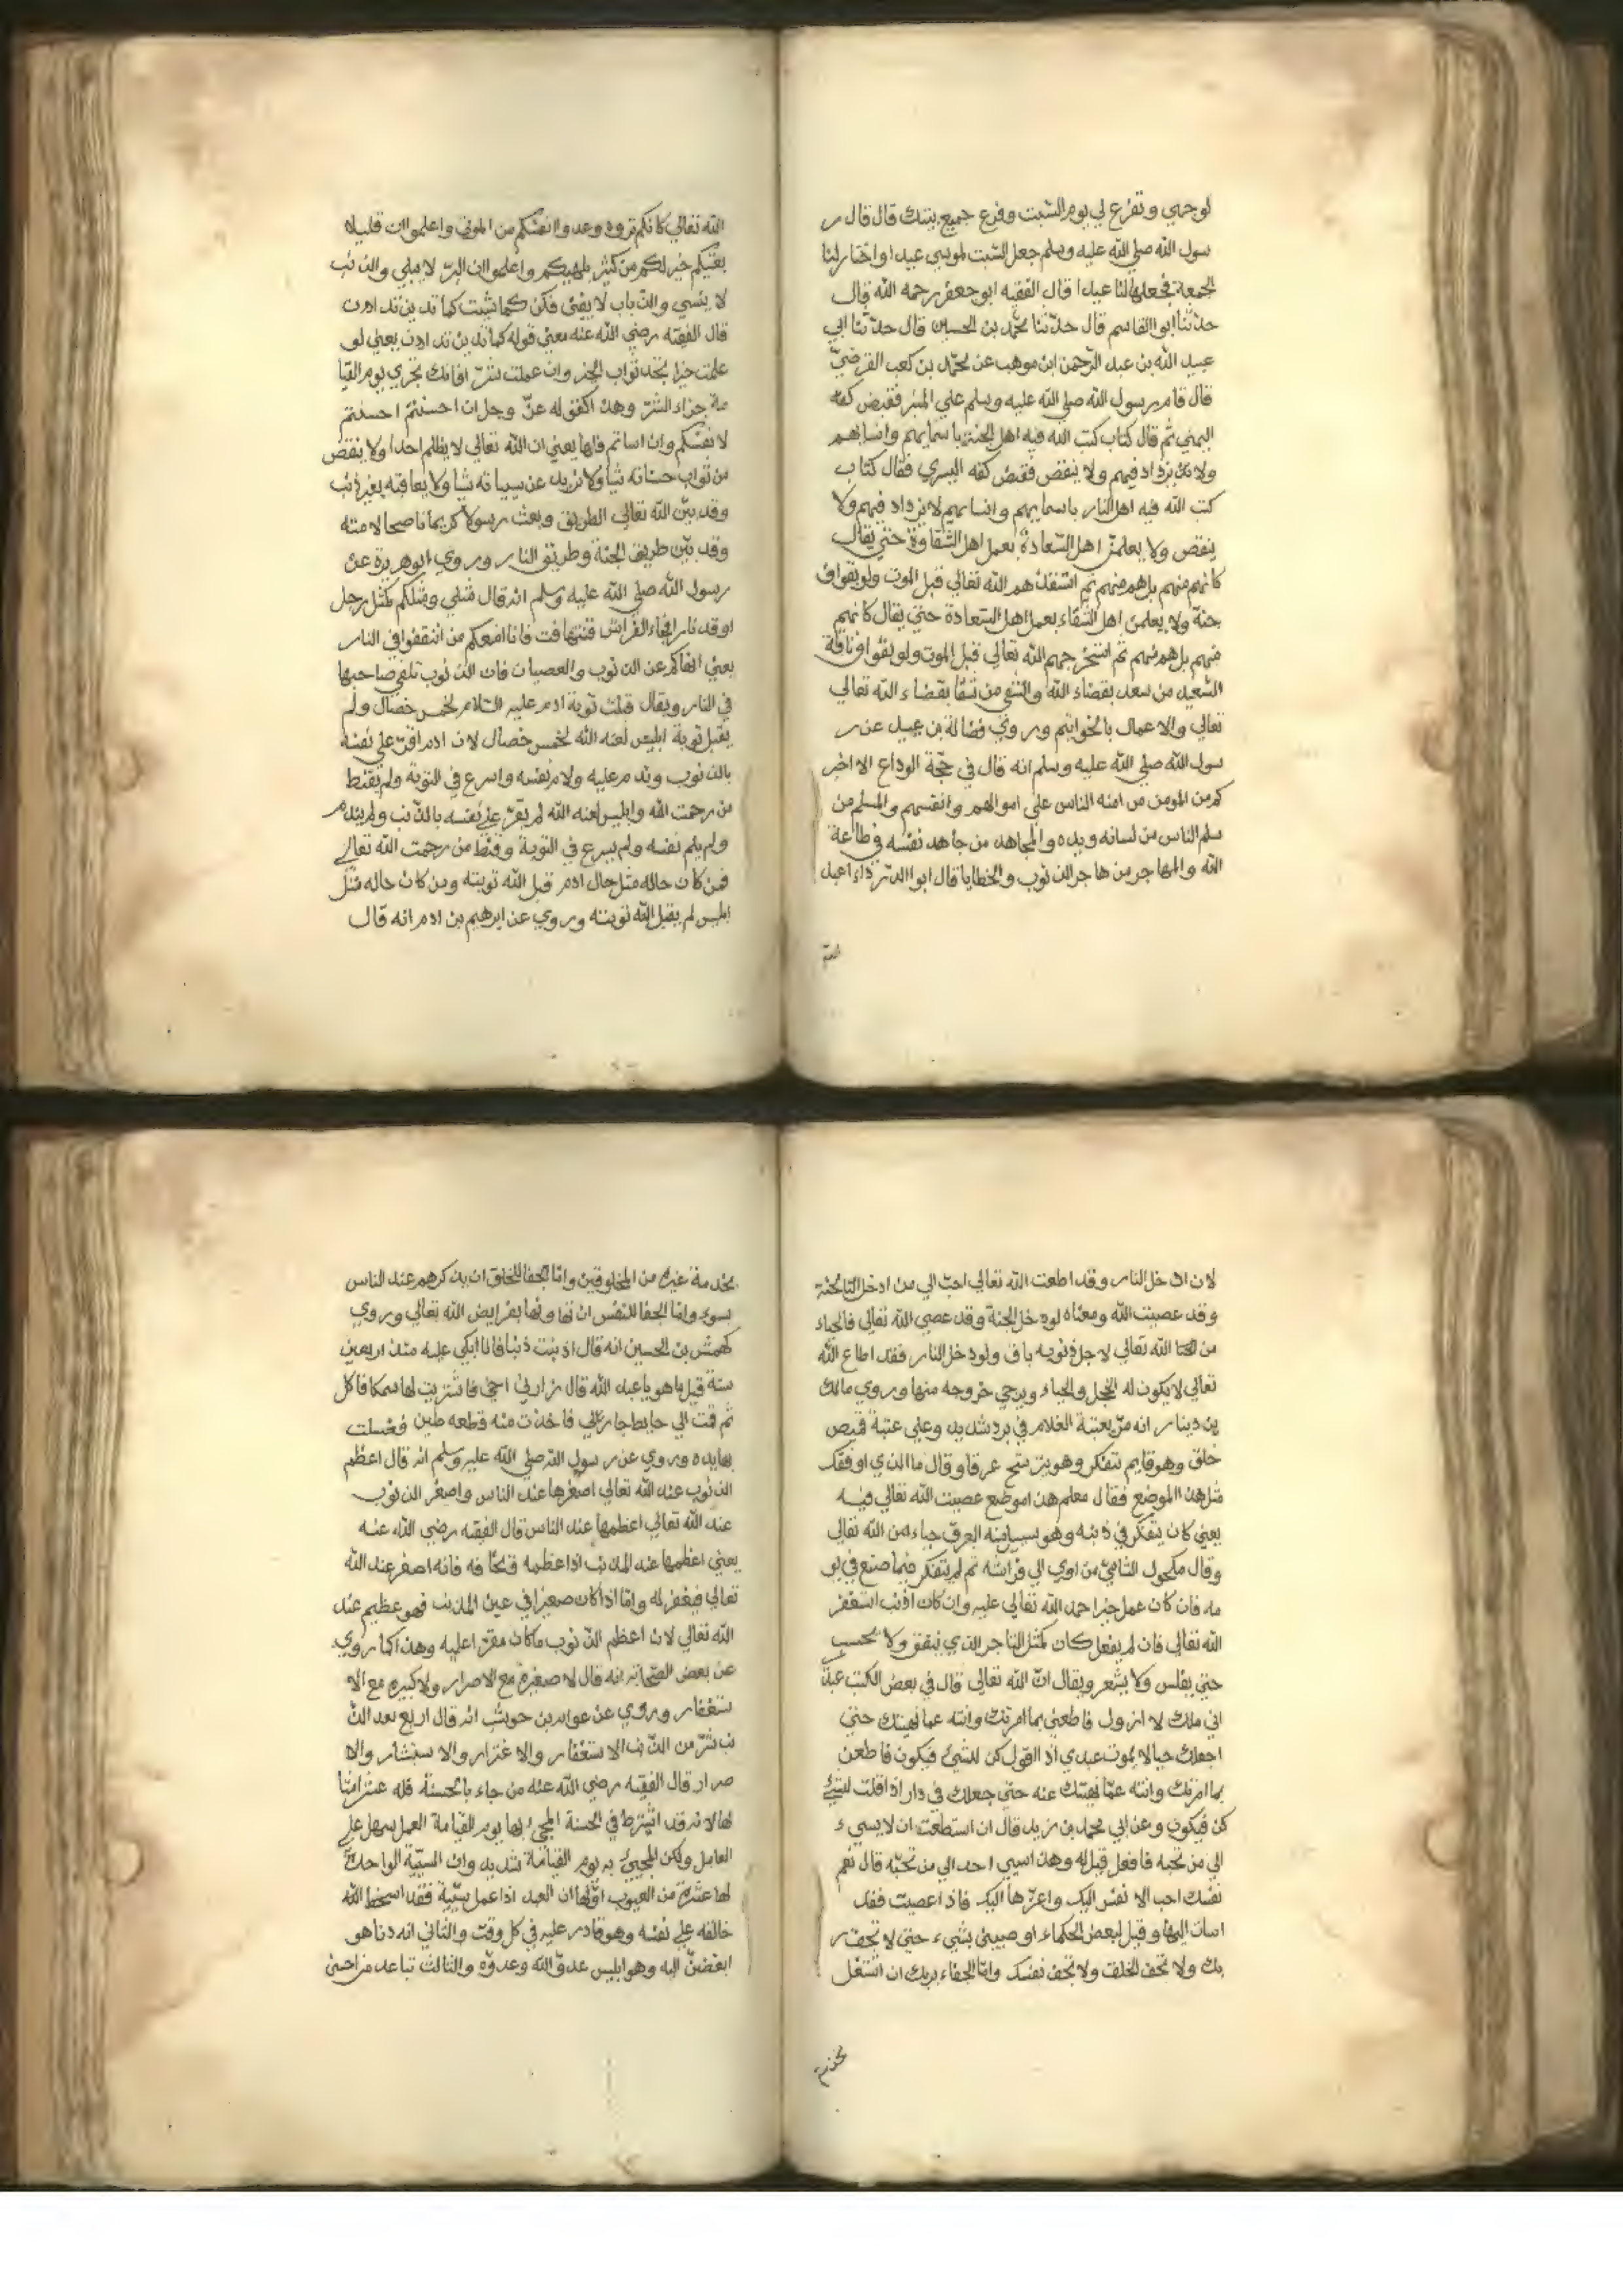 لوجهي وتفرغ لي يوم السبت وفرغ جميع بيتك قال قال ر
سول الله صلي الله عليه وسلم جعل السبت لموسي عيدا واختار لنا
الجمعة فجعلها لنا عيدا قال الفقيه ابو جعفر رحمه الله قال
حدثنا ابو القاسم قال حدثنا محمد بن الحسين قال حدثنا ابي
عبيد الله بن عبد الرحمن ابن موهب عن محمد بن كعب القرضي
قال قام رسول الله صلي الله عليه وسلم علي المنبر فقبض كفه
اليمني ثم قال كتاب كتب الله فيه اهل الجنة باسمايهم وانسابهم
ولا يزداد فيهم ولا ينقص فقبض كفه اليسري فقال كتاب
كتب الله فيه اهل النار باسمايهم وانسابهم لا يزداد فيهم ولا
ينقص ولا يعلمن اهل السعادة بعمل اهل الشقاوة حتي يقال
كانهم منهم بل هم منهم ثم استنقذهم الله تعالي قبل الموت ولو بفواق
جنة ولا يعلمن اهل الشقاء بعمل اهل السعادة حتي يقال كانهم
منهم بل هم منهم ثم استخرجهم الله تعالي قبل الموت ولو بفواق ناقة
السعيد من سعد بقضاء الله والشقي من شقا بقضاء الله تعالي
تعالي والاعمال بالخواتيم وروي فضالة بن عبيد عن ر
سول الله صلي الله عليه وسلم انه قال في حجة الوداع الا اخبر
كم من المومن من امنه الناس علي اموالهم وانفسهم والمسلم من
سلم الناس من لسانه ويده والمجاهد من جاهد نفسه في طاعة
الله والمهاجر من هاجر الذنوب والخطايا قال ابو الدرداء اعبد
الله
الله تعالي كانكم تروه وعدوا انفسكم من الموتي واعلموا ان قليلا
يغنيكم خير لكم من كثير يلهيكم واعلموا ان البر لا يبلي والذنب
لا ينسي والذباب لا يفني فكن كما شيت كما تدين تدان
قال الفقيه رضي الله عنه معني قوله كما تدين تدان يعني لو
علمت خيرا تجد ثواب الخير وان عملت شرا فانك تجزي يوم القيا
مة جزاء الشر وهذا كقوله عز وجل ان احسنتم احسنتم
لانفسكم وان اساتم فلها يعني ان الله تعالي لا يظلم احدا ولا ينقص
من ثواب حسناته شيا ولا يزيد عن سيياته شيا ولا يعاقبه بغير ذنب
وقد بين الله تعالي الطريق وبعث رسولا كريما ناصحا لامته
وقد بين طريق الجنة وطريق النار وروي ابو هريرة عن
رسول الله صلي الله عليه وسلم انه قال مثلي ومثلكم كمثل رجل
اوقد نارا فجاء الفراش فتتهافت فانا امنعكم من ان تقفوا في النار
يعني انهاكم عن الذنوب والعصيان فان الذنوب تلقي صاحبها
في النار ويقال قبلت توبة ادم عليه السلام لخمس خصال ولم
يقبل توبة ابليس لعنه الله لخمس خصال لان ادم اقر علي نفسه
بالذنوب وندم عليه ولام نفسه واسرع في التوبة ولم يقنط
من رحمت الله وابليس لعنه الله لم يقر علي نفسه بالذنب ولم يندم
ولم يلم نفسه ولم يسرع في التوبة وقنط من رحمت الله تعالي
فمن كان حاله مثل حال ادم قبل الله توبته ومن كان حاله مثل
ابليس لم يقبل الله توبته وروي عن ابرهيم بن ادم انه قال
لان ادخل النار وقد اطعت الله تعالي احب الي من ادخل الجنة
وقد عصيت الله ومعناه لو دخل الجنة وقد عصي الله تعالي فالحياء
من الله تعالي لاجل ذنوبه باق ولو دخل النار فقد اطاع الله
تعالي لا يكون له الخجل والحياء ويرجي خروجه منها وروي مالك
بن دينار انه مر بعتبة الغلام في برد شديد وعلي عتبة قميص
خلق وهو قايم يتفكر وهو يترشح عرقا وقال ما الذي اوقفك
مثل هذا الموضع فقال معلم هذا موضع عصيت الله تعالي فيه
يعني كان يتفكر في ذنبه وهو يسيل منه العرق حياء من الله تعالي
وقال مكحول الشامي من اوي الي فراشه ثم لم يتفكر فيما صنع في يو
مه فان كان عمل خيرا حمد الله تعالي عليه وان كان اذنب استغفر
الله تعالي فان لم يفعل كان كمثل التاجر الذي ينفق ولا يحسب
حتي يفلس ولا يشعر ويقال ان الله تعالي قال في بعض الكتب عبد
اني ملك لا ازول فاطعني بما امرتك وانته عما نهيتك حتي
اجعلك حيا لا يموت عبدي اذ القول كن للشيء فيكون فاطعن
بما امرتك وانته عما نهيتك عنه حتي جعلك في دار اذا قلت لشيء
كن فيكون وعن ابي محمد بن زيد قال ان استطعت ان لا يسيء
الي من تحبه فافعل قيل له وهذا يسيي احد الي من تحبه قال نعم
نفسك احب الانفس اليك واعزها اليك فاذا عصيت فقد
اسات اليها وقيل لبعض الحكماء اوصيني بشيء حتي لا تجف ر
بك ولا تجف الخلق ولا تجف نفسك واما الجفاء بربك ان اشتغل
بخدمة
بخدمة غيره من المخلوقين واما الجفا للخلق ان يذكرهم عند الناس
بسوء واما الجفا للنفس ان تهاونها بفرايض الله تعالي وروي
كهمش بن الحسين انه قال اذنبت ذنبا فانا ابكي عليه منذ اربعين
سنة قيل ما هو يا عبد الله قال زارني اخي فاشتريت لها سمكا فاكل
ثم قمت الي حايط جار لي فاخذت منه قطعه طين فغسلت
بها يده وروي عن رسول الله صلي الله عليه وسلم انه قال اعظم
الذنوب عند الله تعالي اصغرها عند الناس واصغر الذنوب
عند الله تعالي اعظمها عند الناس قال الفقيه رضي الله عنه
يعني اعظمها عند المذنب اذا عظمه فخافه فانه اصغر عند الله
تعالي فيغفر له واما اذا كان صغيرا في عين المذنب فهو عظيم عند
الله تعالي لان اعظم الذنوب ما كان مقرا عليه وهذا كما روي
عن بعض الصحابة انه قال لا صغيرة مع الاصرار ولا كبيرة مع الا
ستغفار وروي عن عوام بن حوشب انه قال اربع بعد الذ
نب شر من الذنب الاستغفار والاغترار والاستبشار والا
صرار قال الفقيه رضي الله عنه من جاء بالحسنة فله عشر امثا
لها لانه قد اشترط في الحسنة المجيء بها يوم القيامة العمل سهل علي
العامل ولكن المجيئ به يوم القيامة شديد وان السيية الواحدة
لها عشرة من العيوب اولها ان العبد اذا عمل سيية فقد اسخط الله
خالقه علي نفسه وهو قادر عليه في كل وقت والثاني انه دنا هو
ابغض اليه وهو ابليس عدو الله وعدوه والثالث تباعد من احسن